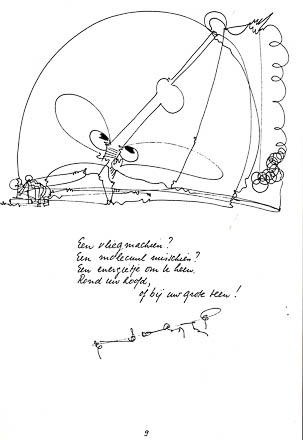 Een vliegmachien?
Een molecuul misschien?
Een energietje om te
Rond uw hoofd,
of bij uw grote teen!
9